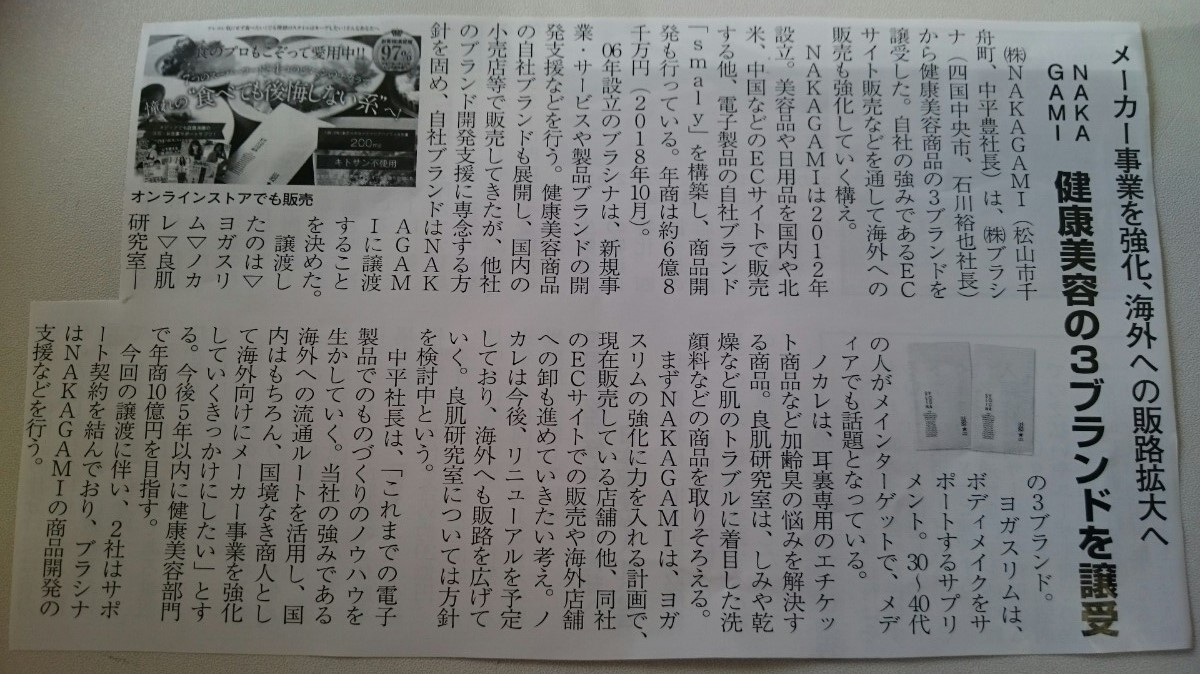 メーカー事業を強化、海外への販路拡大へ
NAKA
GAMI
健康美容の3ブランドを譲受
㈱NAKAGAMI(松山市千
舟町、中平豊社長)は、㈱ブラシ
ナ(四国中央市、石川裕也社長)
から健康美容商品の3ブランドを
譲受した。自社の強みであるEC
サイト販売などを通して海外への
販売も強化していく構え。
NAKAGAMIは2012年
設立。美容品や日用品を国内や北
米、中国などのECサイトで販売
する他、電子製品の自社ブランド
「smaly」を構築し、商品開
発も行っている。年商は約6億8
千万円(2018年10月)。
06年設立のブラシナは、新規事
業・サービスや製品ブランドの開
発支援などを行う。健康美容商品
の自社ブランドも展開し、国内の
小売店等で販売してきたが、他社
のブランド開発支援に専念する方
針を固め、自社ブランドはNAK
AGAM
Iに譲渡
すること
を決めた。
譲渡し
たのは▽
ヨガスリ
ム▽ノカ
レ▽良肌
研究室―
食のプロもこぞって愛用中!!
97%
憧れの"食べても後悔しない系"へ
200mg
キトサン不使用
オンラインストアでも販売
の3ブランド。
ヨガスリムは、
ボディメイクをサ
ポートするサプリ
メント。30~40代
の人がメインターゲットで、メデ
ィアでも話題となっている。
ノカレは、耳裏専用のエチケッ
ト商品など加齢臭の悩みを解決す
る商品。良肌研究室は、しみや乾
燥など肌のトラブルに着目した洗
顔料などの商品を取りそろえる。
まずNAKAGAMIは、ヨガ
スリムの強化に力を入れる計画で、
現在販売している店舗の他、同社
のECサイトでの販売や海外店舗
への卸も進めていきたい考え。ノ
カレは今後、リニューアルを予定
しており、海外へも販路を広げて
いく。良肌研究室については方針
を検討中という。
中平社長は、「これまでの電子
製品でのものづくりのノウハウを
生かしていく。当社の強みである
海外への流通ルートを活用し、国
内はもちろん、国境なき商人とし
て海外向けにメーカー事業を強化
していくきっかけにしたい」とす
る。今後5年以内に健康美容部門
で年商10億円を目指す。
今回の譲渡に伴い、2社はサポ
ート契約を結んでおり、ブラシナ
はNAKAGAMIの商品開発の
支援などを行う。